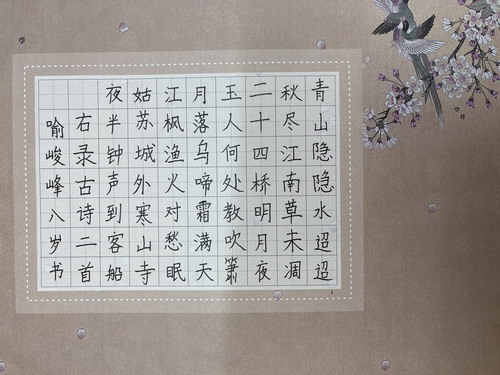 青山隐隐水迢迢
秋尽江南草未凋
二十四桥明月夜
玉人何处教吹箫
月落乌啼霜满天
江枫渔火对愁眠
姑苏城外寒山寺
夜半钟声到客船
右录古诗二首
喻峻峰八岁书